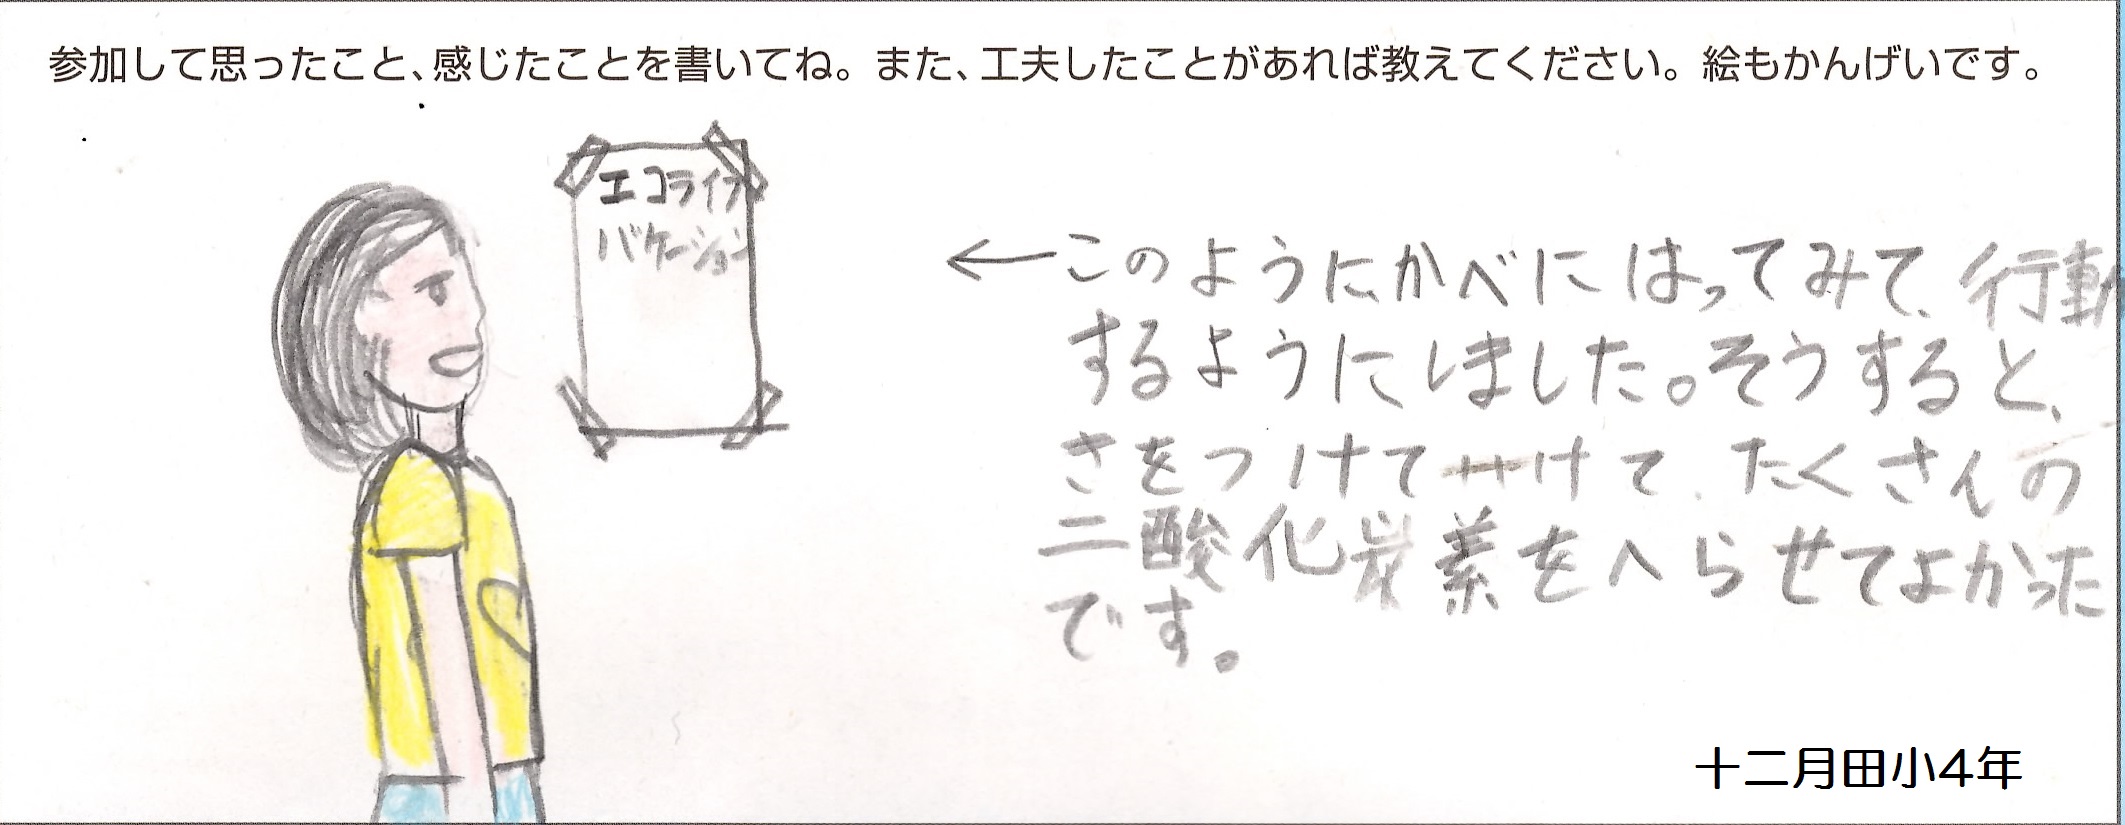 参加して思ったこと、感じたことを書いてね。また、工夫したことがあれば教えてください。絵もかんげいです。
エコライフ
バケーション
←このようにかべにはってみて、行動
するようにしました。そうすると、
きをつけて けて、たくさんの
二酸化炭素をへらせてよかった
です。
十二月田小4年